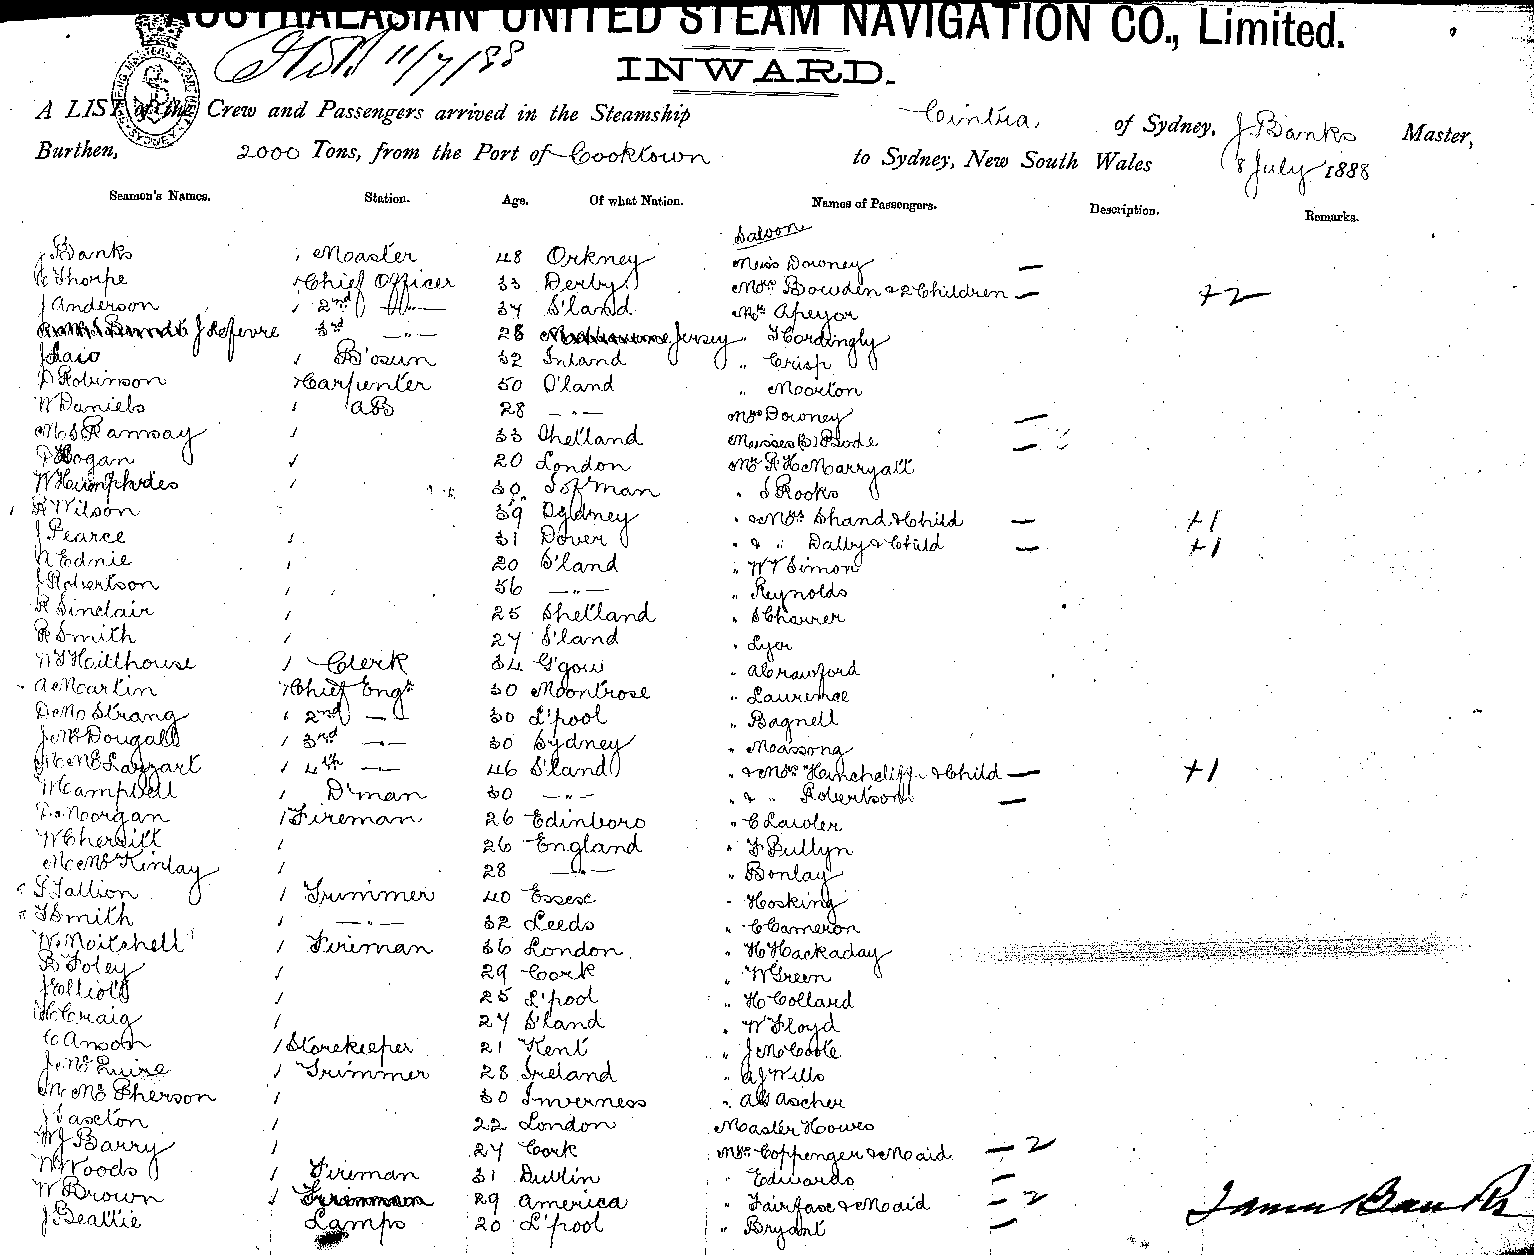 AUSTRALASIAN UNITED STEAM NAVIGATION CO., Limited.
11/7/88
INWARD.
A LIST of the Crew and Passengers arrived in the Steamship Cintra, of Sydney, J Banks Master,
Burthen, 2000 Tons, from the Port of Cooktown to Sydney, New South Wales 8 July 1888
Seamen's Names. Station. Age. Of what Nation. Names of Passengers. Description. Remarks.
Saloon
J Banks Master 48 Orkney Miss Downey —
Thorpe Chief Officer 33 Derby Mrs Bowden & 2 Children — +2
J Anderson 2nd —"— 34 S'land Mr Apeyor
J Lefevre 3rd —"— 28 Jersey " Hordingly
J Laio B'osun 32 Inland " Crisp
D Robinson Carpenter 50 O'land " Morton
W Daniels AB 28 —"— Mrs Downey —
M S Ramsay 33 Shetland Misses Bode —
P Hogan 20 London Mr R H Marryatt
W Humphries 30 I of Man " S Rooks
R Wilson 39 Sydney " & Mrs Shand & Child — +1
J Pearce 31 Dover " & " Dalby & Child — +1
N Ednie 20 S'land " W V Simon
J Robertson 56 —"— " Reynolds
R Sinclair 25 Shetland " S Charrer
R Smith 27 S'land " Lyer
W F Hillhouse Clerk 34 G'gow " A Crawford
A Martin Chief Engr 30 Montrose " Laurence
D M Strang 2nd —"— 30 L'pool " Bagnell
J McDougall 3rd —"— 30 Sydney " Massong
McTaggart 4th —"— 46 S'land " & Mrs Hinchcliff & Child — +1
W Campbell D'man 30 —"— " & " Robertson —
D Morgan Fireman 26 Edinboro " C Lawler
W Cherritt 26 England " F Bullyn
M McKinlay 28 —"— " Bonlay
S Tallion Trimmer 40 Essex " Hosking
T Smith —"— 32 Leeds " C Cameron
W Mitchell Fireman 36 London " H Hackaday
B Foley 29 Cork " W Green
J Elliott 25 L'pool " H Collard
H Craig 27 S'land " W Floyd
C Anson Storekeeper 21 Kent " J M Coote
J McGuire Trimmer 28 Ireland " A J Wills
M McPherson 30 Inverness " A G Ascher
J Vaseton 22 London Master Howes
W J Barry 27 Cork Mrs Coppenger & Maid — 2
W Woods Fireman 31 Dublin " Edwards —
W Brown 29 America " Fairfax & Maid — 2
J Beattie Lamps 20 L'pool " Bryant —
James Banks